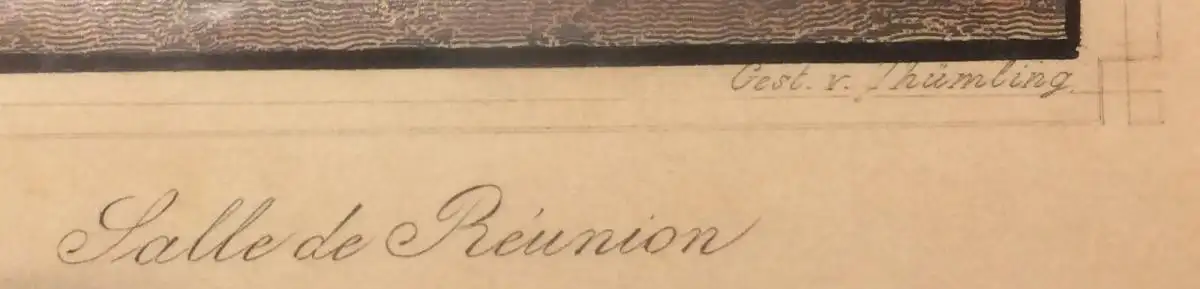 Gest. v. Thümling.
Salle de Réunion